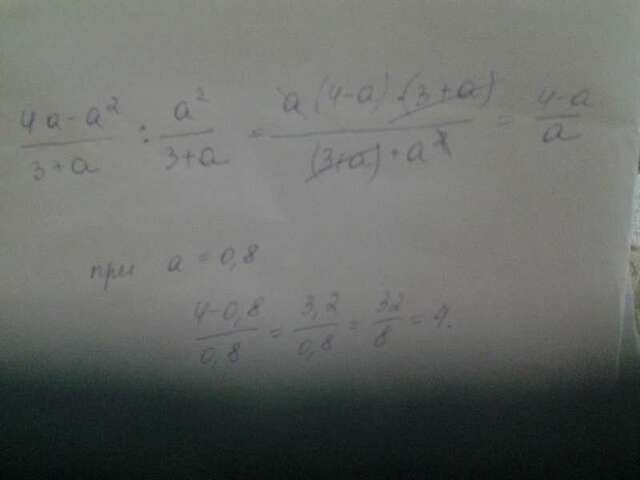 (4a-a²)/(3+a) : a²/(3+a) = (a(4-a)·(3+a))/((3+a)·a²) = (4-a)/a
при a = 0,8
(4-0,8)/0,8 = 3,2/0,8 = 32/8 = 4.